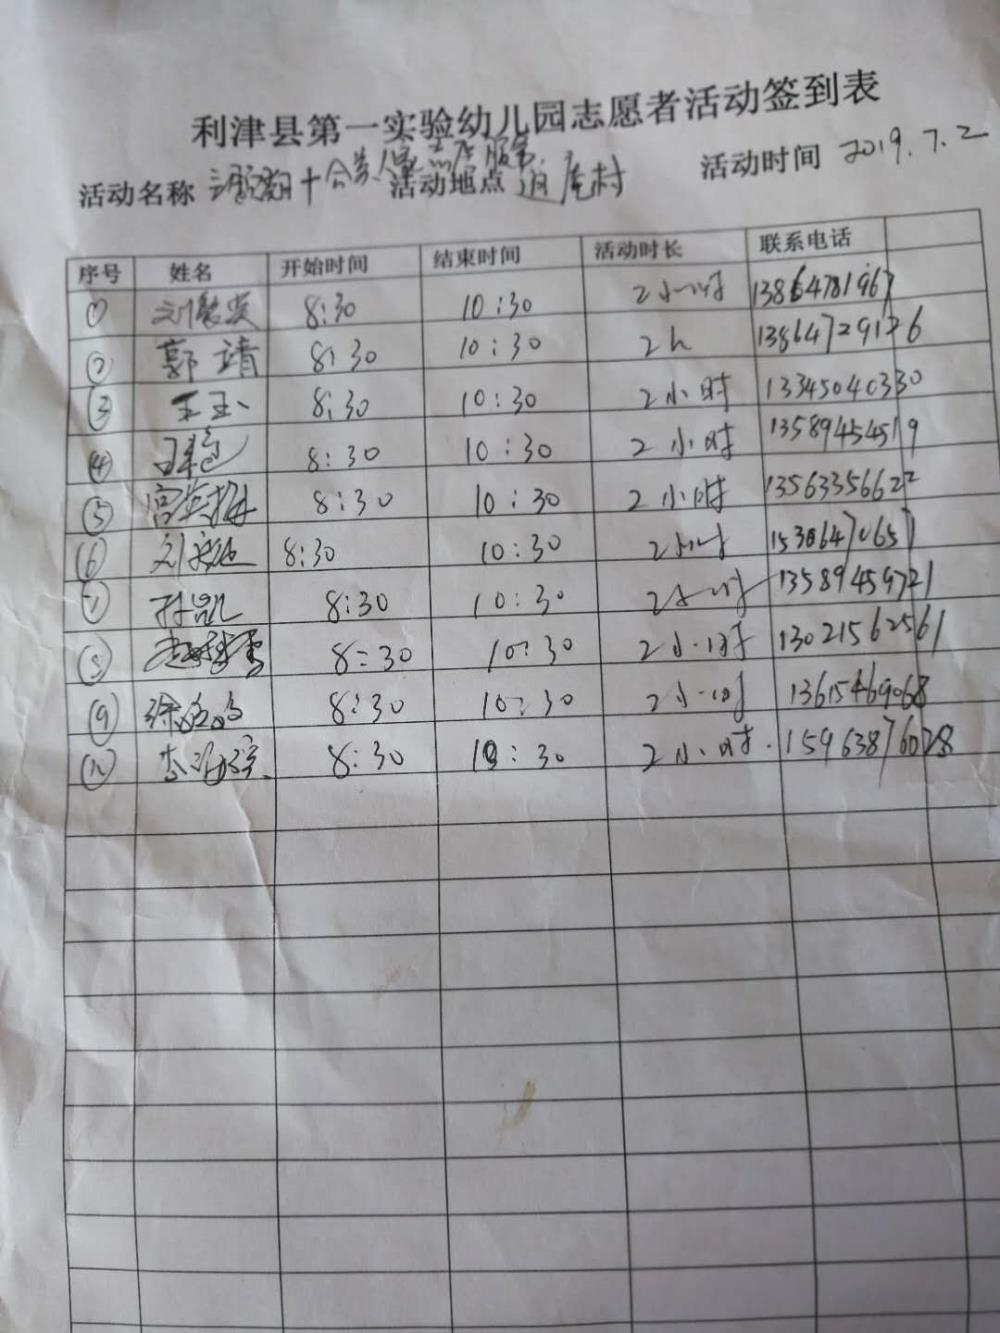 利津县第一实验幼儿园志愿者活动签到表
活动名称 活动地点 庄村 活动时间 2019.7.2
序号 姓名 开始时间 结束时间 活动时长 联系电话
① 8:30 10:30 2小时 13864781967
② 郭靖 8:30 10:30 2h 13864729126
③ 王玉 8:30 10:30 2小时 13345040330
④ 8:30 10:30 2小时 13589454519
⑤ 8:30 10:30 2小时 13563356622
⑥ 8:30 10:30 2小时 15306470657
⑦ 孙凯 8:30 10:30 2小时 13589459721
⑧ 8:30 10:30 2小时 13021562561
⑨ 8:30 10:30 2小时 13615469068
⑩ 8:30 10:30 2小时. 15963876028